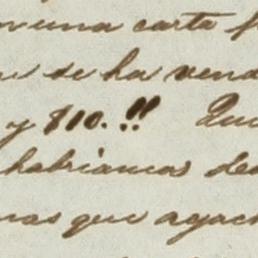 una carta
se ha vend
y $10.!! Que
habriamos de
mas que agach